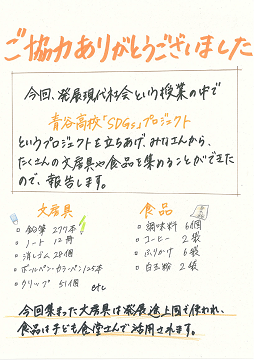 ご協力ありがとうございました
今回、発展現代社会という授業の中で
青谷高校「SDGs」プロジェクト
というプロジェクトを立ちあげ、みなさんから、
たくさんの文房具や食品を集めることができた
ので、報告します。
文房具
○ 鉛筆 277本
○ ノート 12冊
○ 消しゴム 28個
○ ボールペン・カラーペン125本
○ クリップ 51個 etc
食品
○ 調味料 6個
○ コーヒー 2袋
○ ふりかけ 6袋
○ 白玉粉 2袋
今回集まった文房具は発展途上国で使われ、
食品は子ども食堂さんで活用されます。